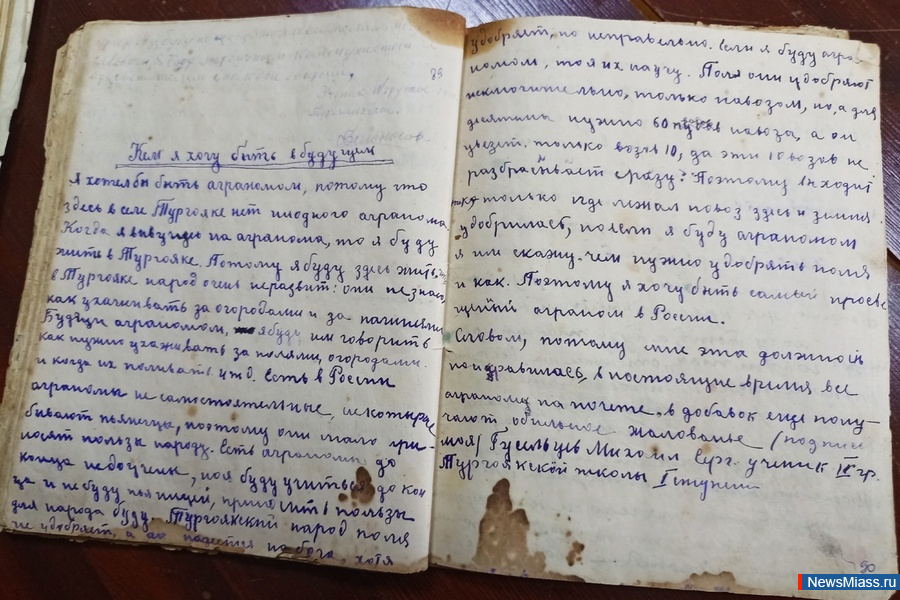 89
Кем я хочу быть в будущем
Я хотел бы быть аграномом, потому что
здесь в селе Тургояке нет ниодного агранома.
Когда я выучусь на агранома, то я буду
жить в Тургояке. Потому я буду здесь жить, что
в Тургояке народ очень неразвит: они не знают
как ухаживать за огородами и за пашнями
Будучи аграномом, я буду им говорить
как нужно ухаживать за полями, огородами
и когда их поливать и т.д. Есть в России
аграномы не самостоятельные, некоторые
бывают пьяницы, поэтому они мало при-
носят пользы народу. Есть аграномы до
конца недоучки, но я буду учиться до кон
ца и не буду пьяницей, приносить пользы
для народа буду. Тургоякский народ поля
не удобряет, а надеется на бога, хотя
удобряет, но неправельно. Если я буду агра-
номом, то я их научу. Поля они удобряют
исключительно, только навозом, но, а для
десятины нужно 60 возов навоза, а он
увезет только возов 10, да эти 10 возов не
разбрасывает сразу? Поэтому выходит
только где лежал навоз здесь и земля
удобрилась, но если я буду аграномом
я им скажу, чем нужно удобрять поля
и как. Поэтому я хочу быть самый просве
щеный аграном в России.
Словом, потому мне эта должность
понравилась, в настоящие время все
аграномы на почете, в добавок еще полу-
чают обильное жалованье (подпись
моя) Гусельцев Михаил Серг. ученик IV гр.
Тургоякской школы I ступени
90
NewsMiass.ru